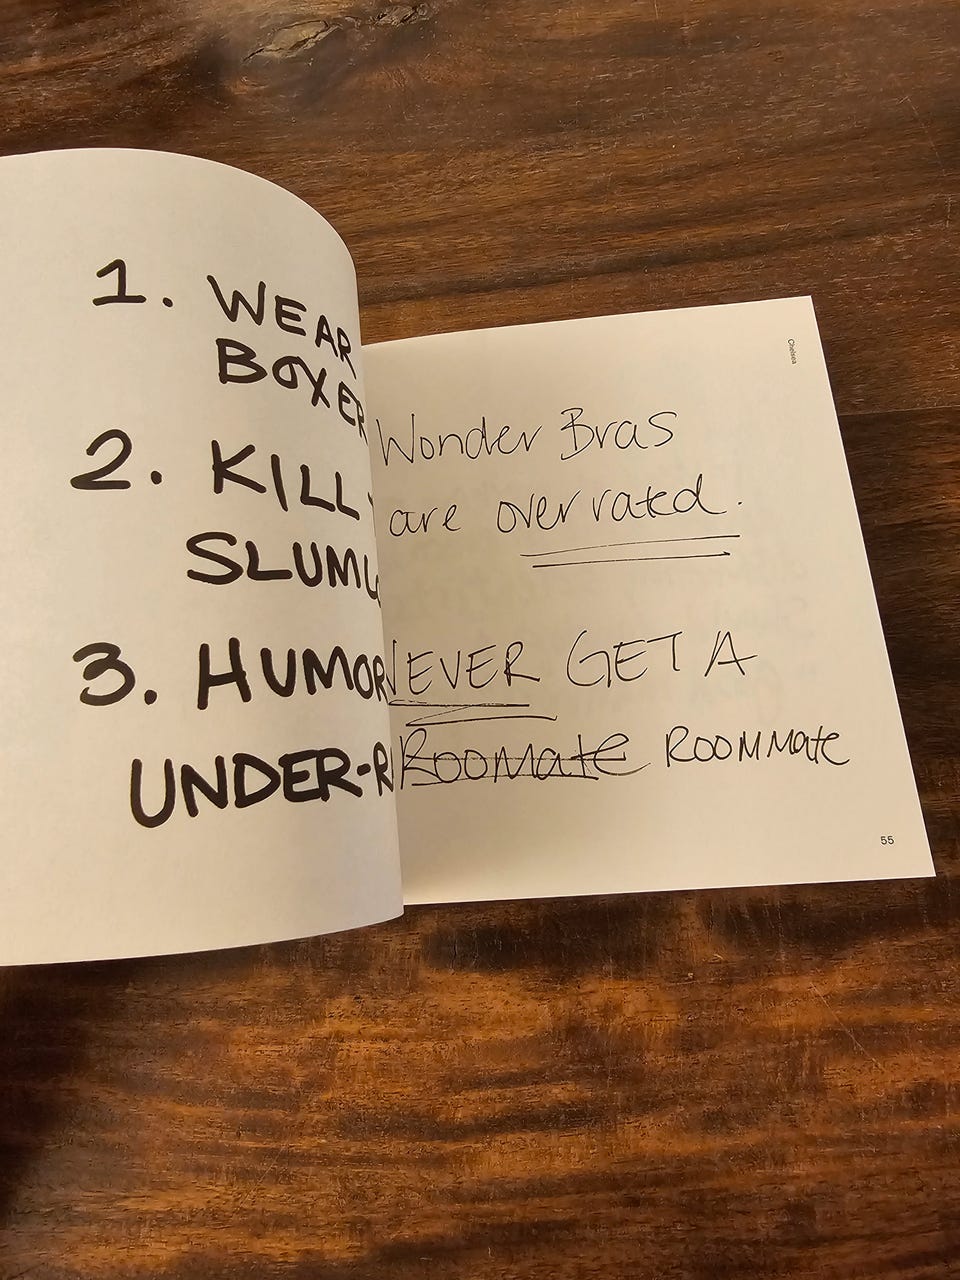 1. WEAR
BOXER
2. KILL
SLUML
3. HUMOR
UNDER-R
Chelsea
Wonder Bras
are overrated.
NEVER GET A
Roomate ROOMMate
55